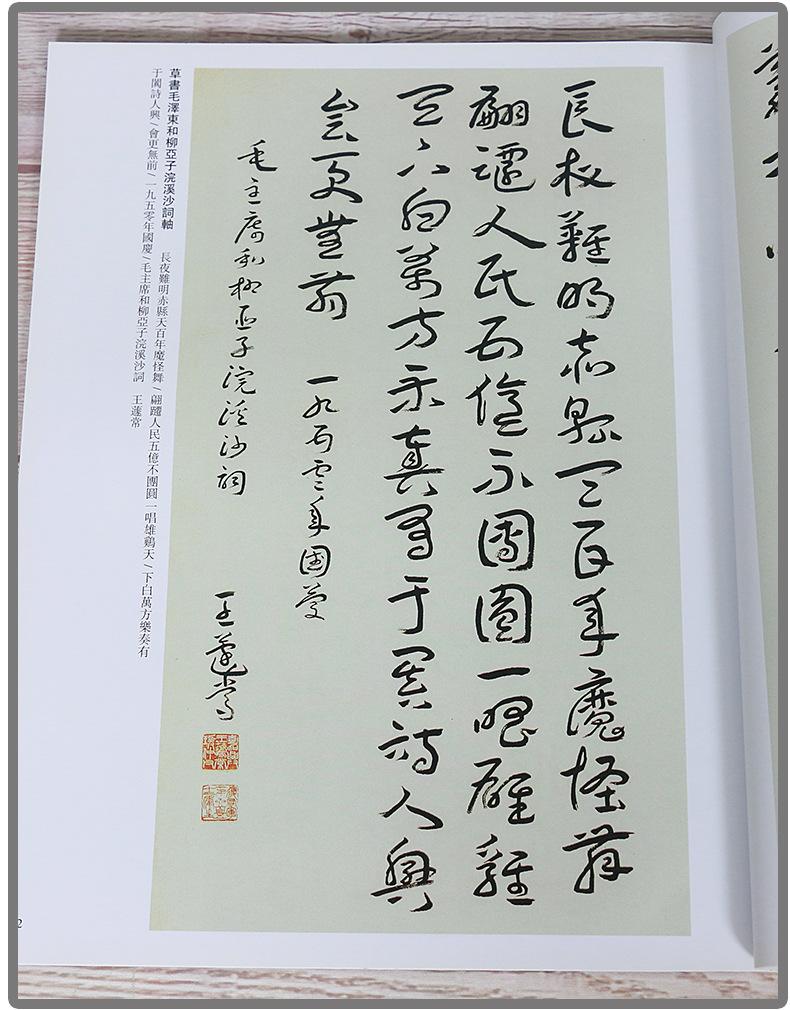 長夜難明赤縣天百年魔怪舞
翩躚人民五億不團圓一唱雄鷄
天下白萬方樂奏有于闐詩人興
會更無前 一九五零年國慶
毛主席和柳亞子浣溪沙詞
王蘧常
草書毛澤東和柳亞子浣溪沙詞軸 長夜難明赤縣天百年魔怪舞/翩躚人民五億不團圓一唱雄鷄天/下白萬方樂奏有
于闐詩人興/會更無前/一九五零年國慶/毛主席和柳亞子浣溪沙詞 王蘧常
2